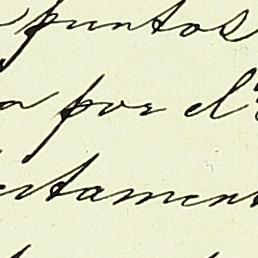 puntos
a por el
rtament